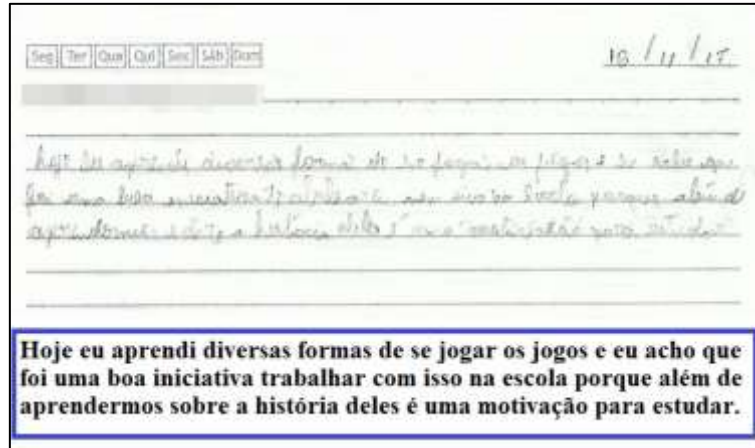 Seg Ter Qua Qui Sex Sáb Dom
18/11/15
Hoje eu aprendi diversas formas de se jogar os jogos e eu acho que
foi uma boa iniciativa trabalhar na escola porque além de
aprendermos sobre a história deles é uma motivação para estudar
Hoje eu aprendi diversas formas de se jogar os jogos e eu acho que
foi uma boa iniciativa trabalhar com isso na escola porque além de
aprendermos sobre a história deles é uma motivação para estudar.